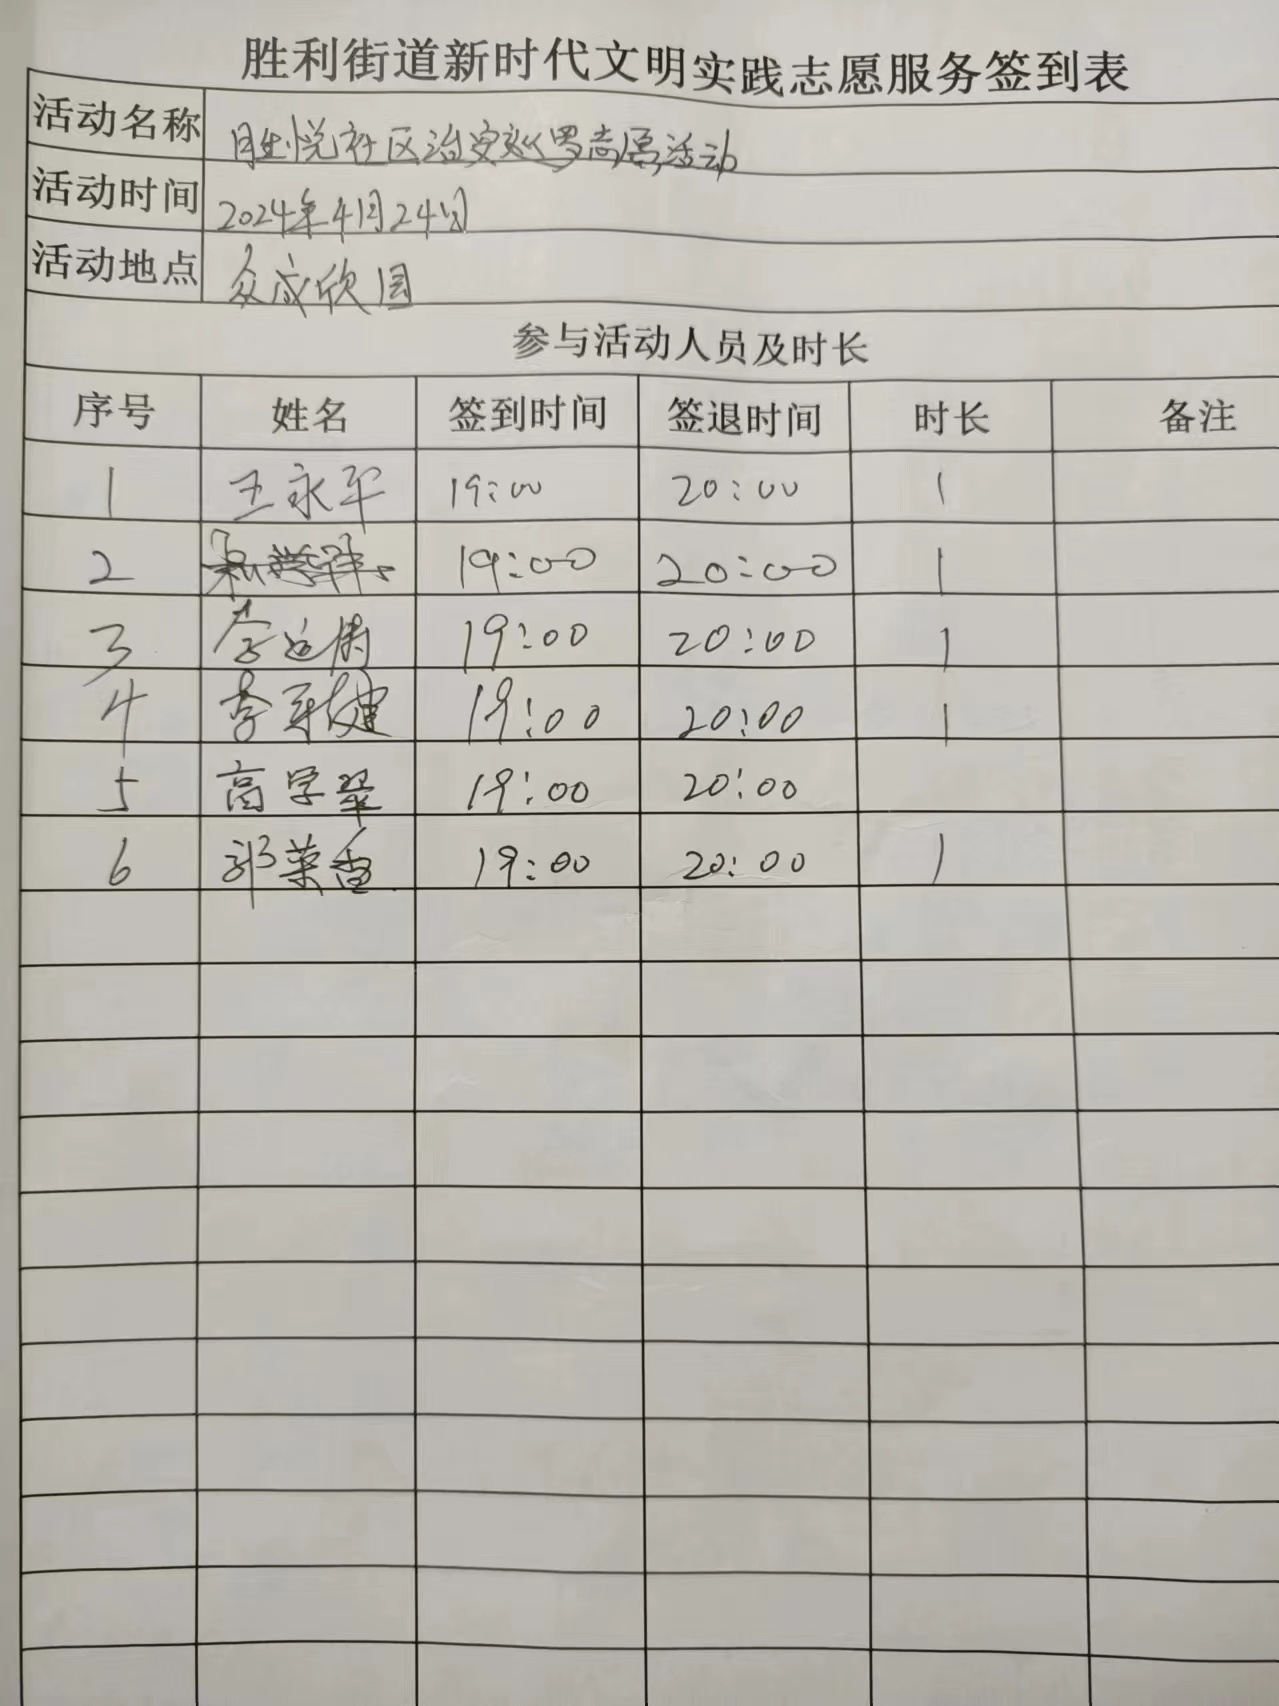 胜利街道新时代文明实践志愿服务签到表
活动名称 胜悦社区治安巡逻志愿活动
活动时间 2024年4月24日
活动地点 众成欣园
参与活动人员及时长
序号 姓名 签到时间 签退时间 时长 备注
1 王永平 19:00 20:00 1
2 19:00 20:00 1
3 李 19:00 20:00 1
4 李 健 19:00 20:00 1
5 高学翠 19:00 20:00
6 郭荣香 19:00 20:00 1